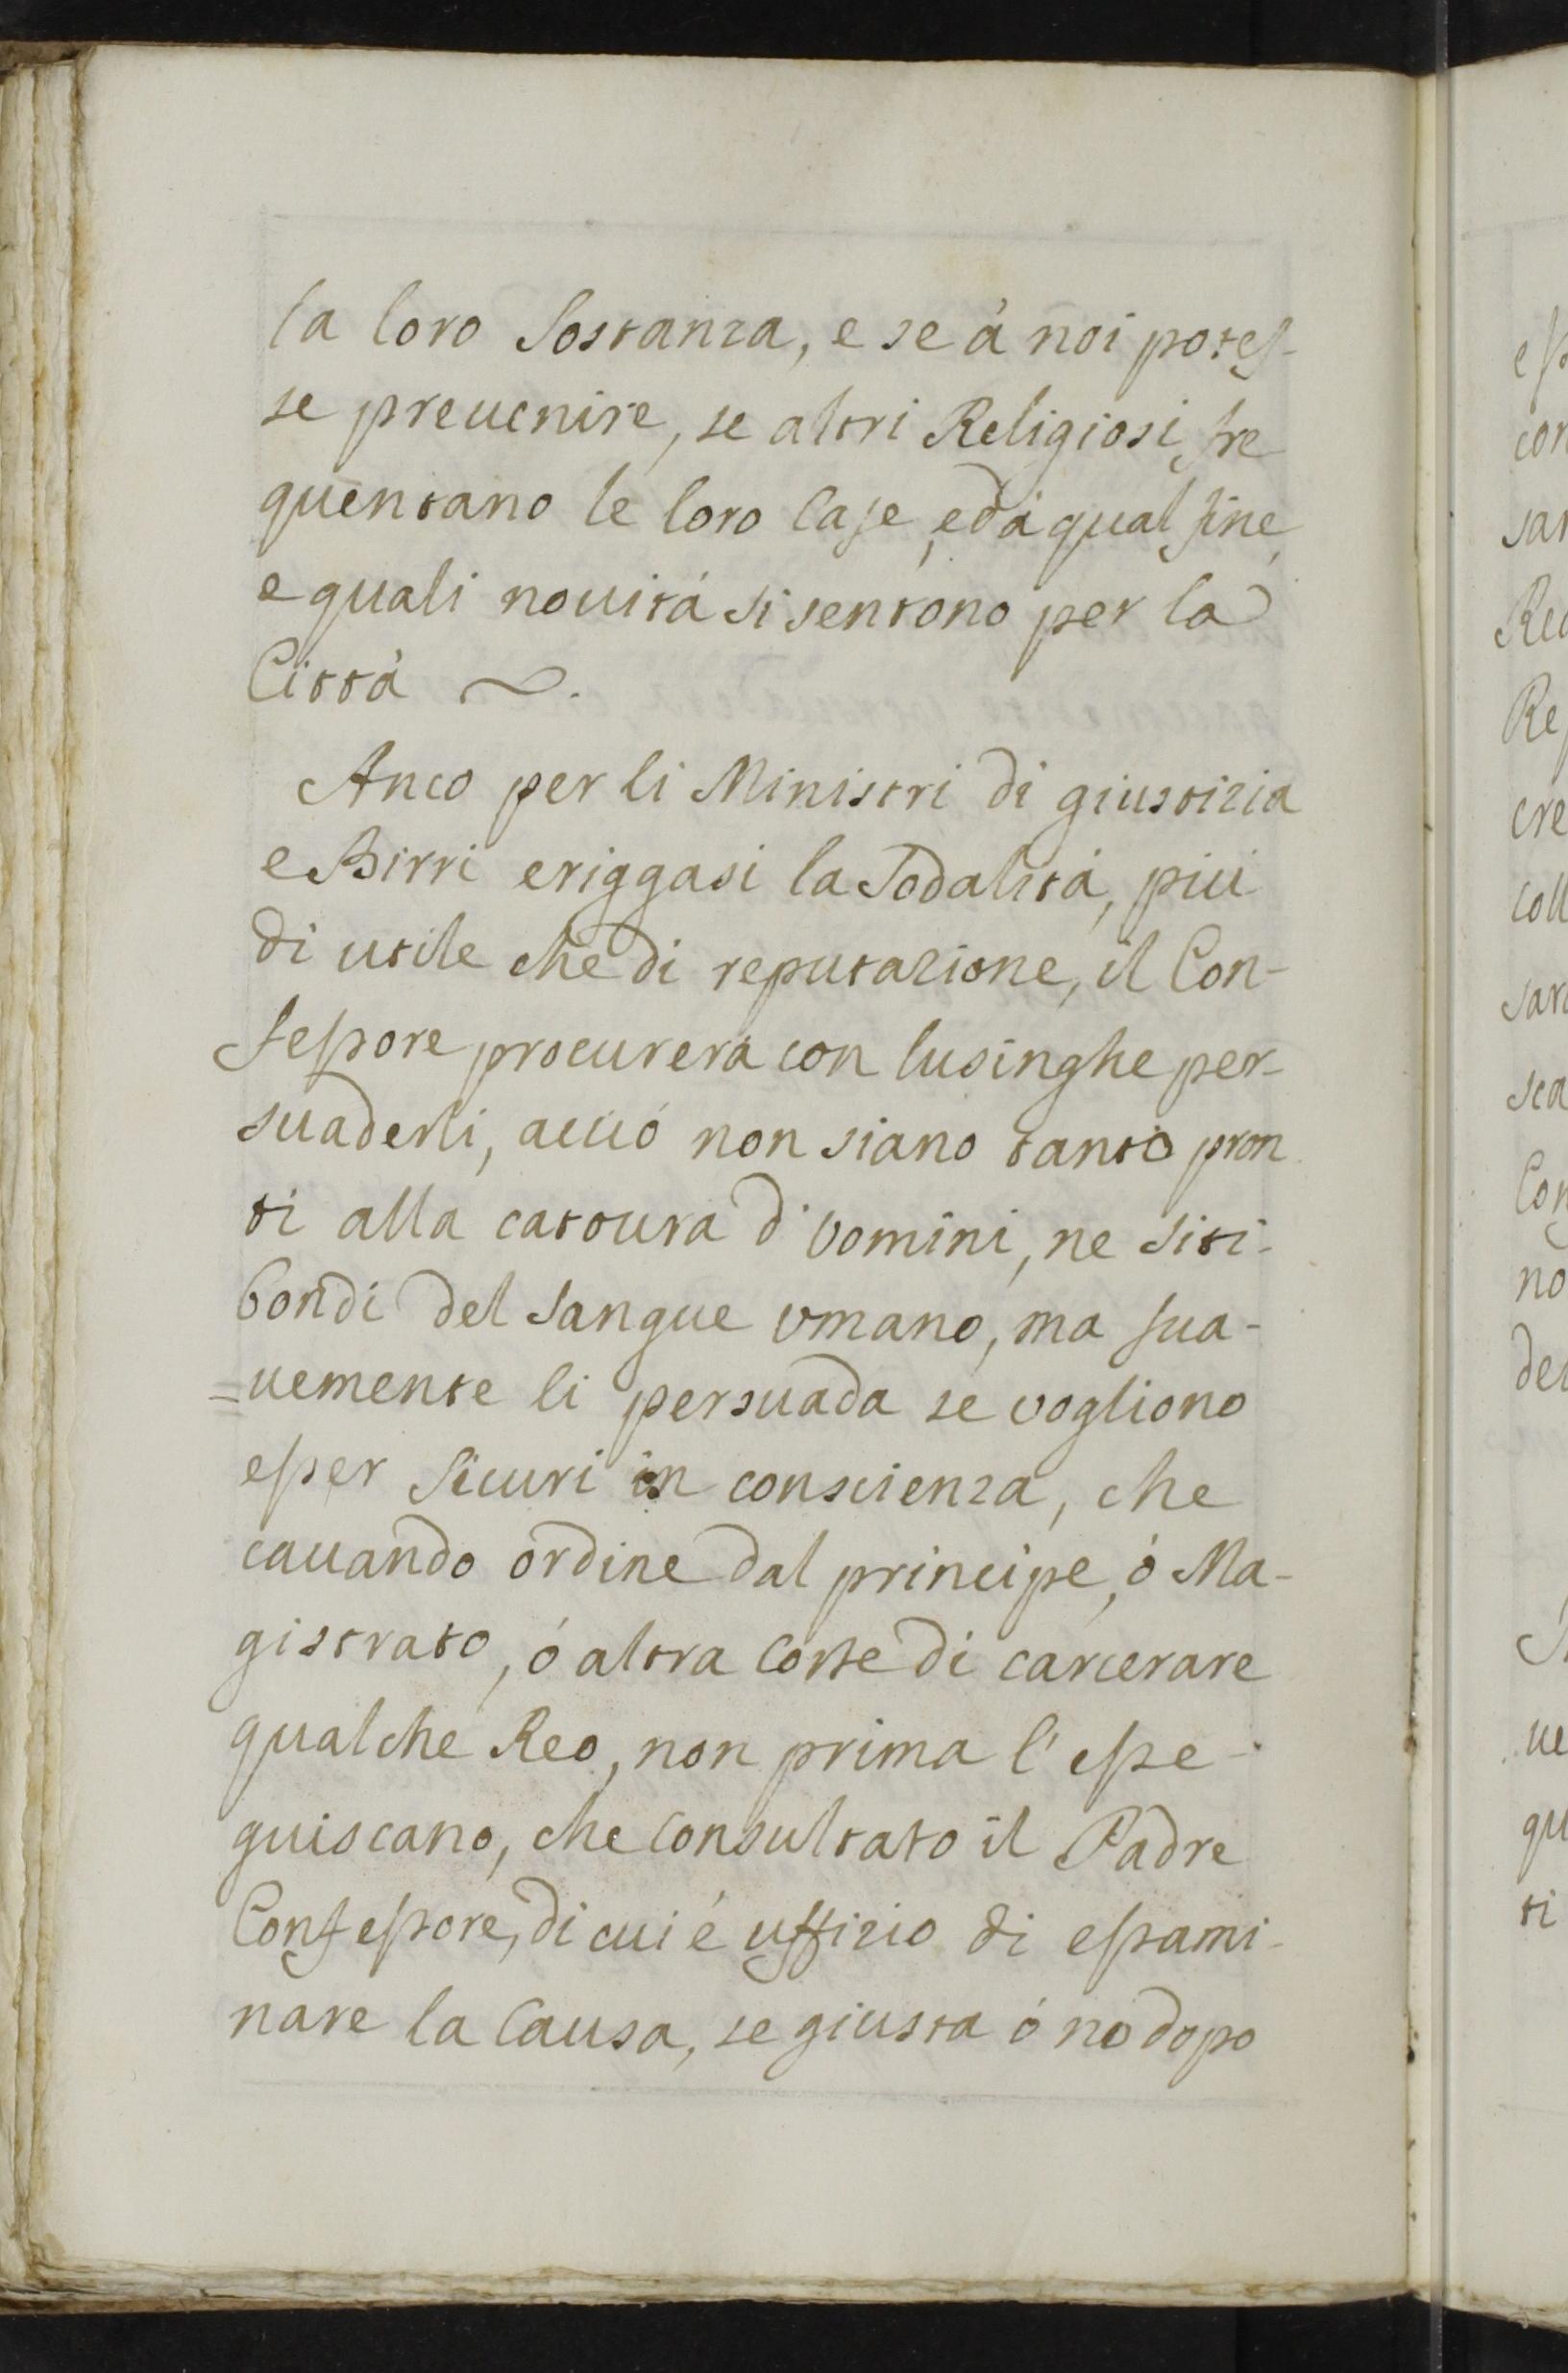 la loro Sostanza, e se à noi potes-
se preuenire, se altri Religiosi fre
quentano le loro Case, ed à qual fine,
e quali nouità si sentono per la
Città
Anco per li Ministri di giustizia
e Birri eriggasi la Sodalità, più
di utile che di reputazione, il Con-
fessore procurerà con lusinghe per-
suaderli, acciò non siano tanto pron
ti alla cattura d'Uomini, ne siti-
bondi del Sangue Umano, ma sua-
=uemente li persuada se vogliono
esser sicuri in conscienza, che
cauando ordine dal principe, ò Ma-
gistrato, ò altra Corte di carcerare
qualche Reo, non prima l'esse-
guiscano, che consultato il Padre
Confessore, di cui è uffizio di essami-
nare la Causa, se giusta ò no dopo
ess
con
sar
Re
cre
coll
sar
sca
Con
no
de
ue
qu
ti